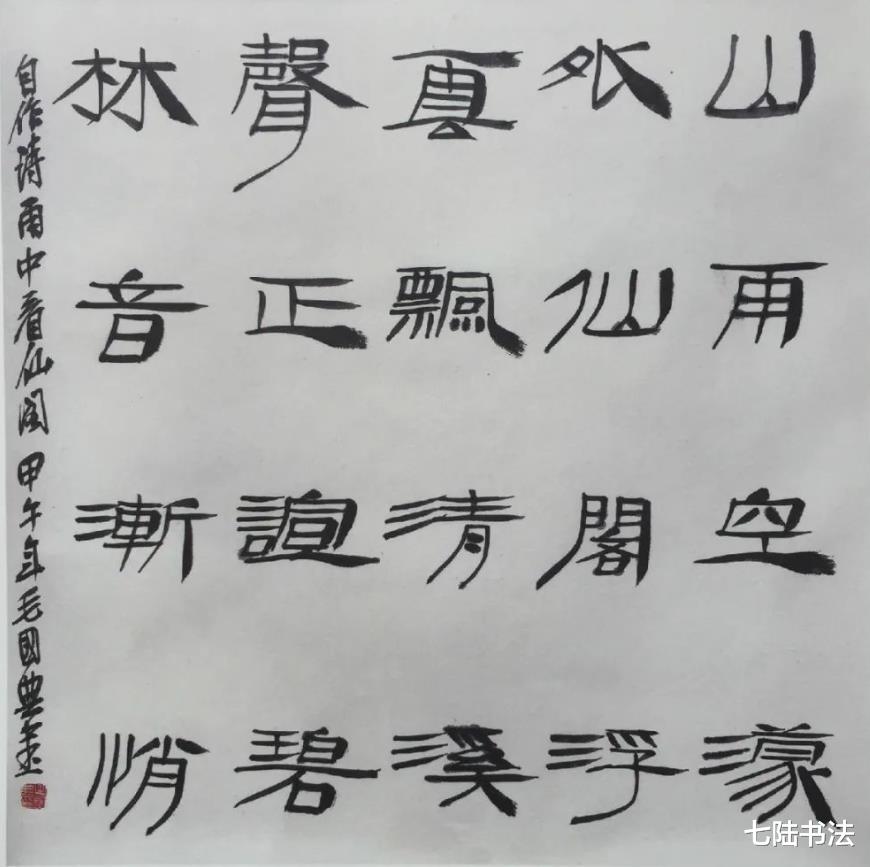 山雨空濛
外仙閣浮
真飄清溪
聲正諠碧
林音漸悄
自作詩雨中看仙阁 甲午年毛國典
七陆书法